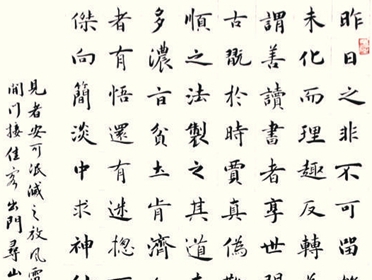 昨日之非不可留
未化而理趣反轉
謂善讀書者享世
古既於時賈真偽難
順之法製之其道
多濃旨貧士肯濟
者有悟還有迷
傑向簡淡中求神
見者安可泯滅之放風
閒門接佳客出門尋山